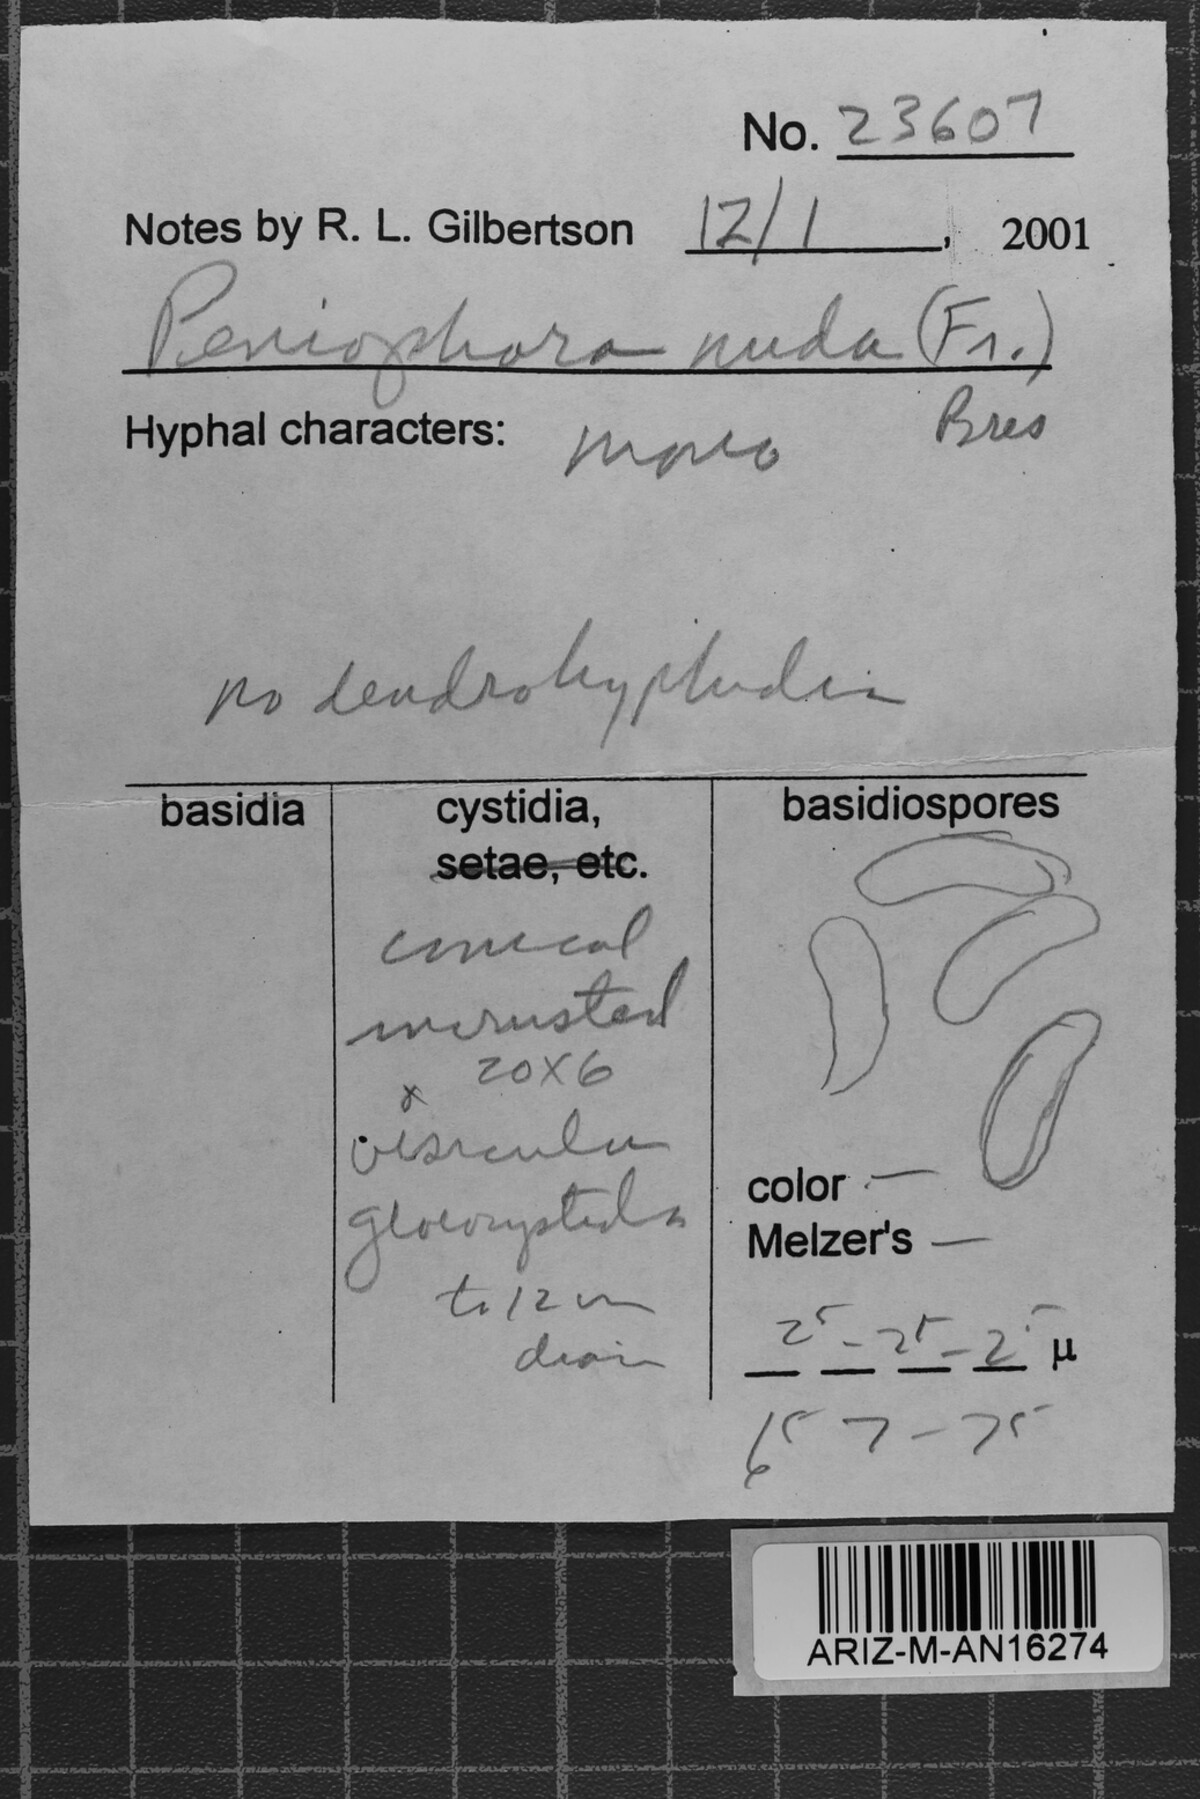 No. 23607
Notes by R. L. Gilbertson 12/1, 2001
Peniophora nuda (Fr.)
Bres
Hyphal characters: mono
no dendrohyphidia
basidia
cystidia,
setae, etc.
conical
incrusted
20X6
x
vesicular
gloeocystidia
to 12 um
diam
basidiospores
color —
Melzer's —
25 - 25 - 25 µ
65 7 - 75
ARIZ-M-AN16274